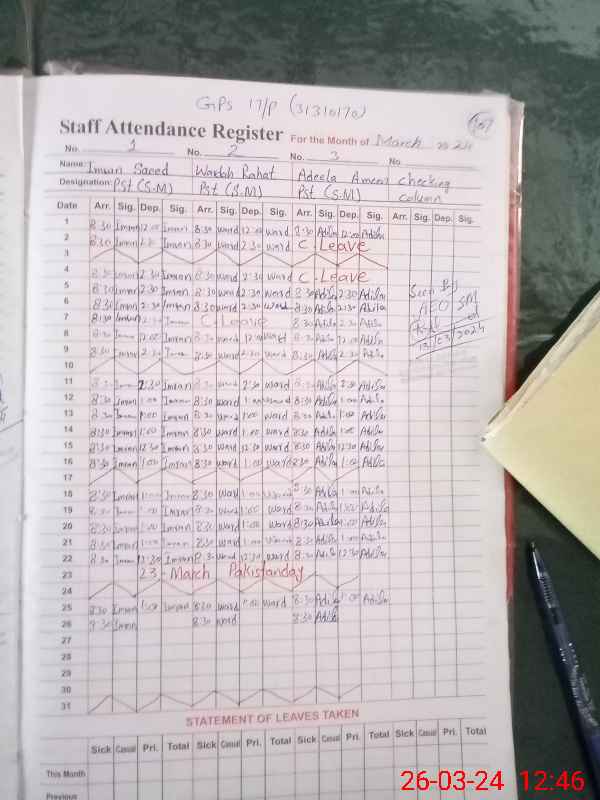 GPS 17/P (31310170)
107
Staff Attendance Register For the Month of March 2024
No. 1 No. 2 No. 3 No.
Name: Imran Saeed Wardah Rahat Adeela Ameen Checking
Designation: Pst (S.M) Pst (S.M) Pst (S.M) column
Date Arr. Sig. Dep. Sig. Arr. Sig. Dep. Sig. Arr. Sig. Dep. Sig. Arr. Sig. Dep. Sig.
1 8:30 Imran 12:00 Imran 8:30 ward 12:00 ward 8:30 Adila 12:00 Adila
2 8:30 Imran 2:30 Imran 8:30 ward 2:30 ward C-Leave
3
4 8:30 Imran 2:30 Imran 8:30 ward 2:30 ward C-Leave
5 8:30 Imran 2:30 Imran 8:30 ward 2:30 ward 8:30 Adila 2:30 Adila
6 8:30 Imran 2:30 Imran 8:30 ward 2:30 ward 8:30 Adila 2:30 Adila
7 8:30 Imran 2:30 Imran C-Leave 8:30 Adila 2:30 Adila
8 8:30 Imran 12:00 Imran 8:30 ward 12:00 ward 8:30 Adila 12:00 Adila
9 8:30 Imran 2:30 Imran 8:30 ward 2:30 ward 8:30 Adila 2:30 Adila
10
11 8:30 Imran 2:30 Imran 8:30 ward 2:30 ward 8:30 Adila 2:30 Adila
12 8:30 Imran 1:00 Imran 8:30 ward 1:00 ward 8:30 Adila 1:00 Adila
13 8:30 Imran 1:00 Imran 8:30 ward 1:00 ward 8:30 Adila 1:00 Adila
14 8:30 Imran 1:00 Imran 8:30 ward 1:00 ward 8:30 Adila 1:00 Adila
15 8:30 Imran 12:30 Imran 8:30 ward 12:30 ward 8:30 Adila 12:30 Adila
16 8:30 Imran 1:00 Imran 8:30 ward 1:00 ward 8:30 Adila 1:00 Adila
17
18 8:30 Imran 1:00 Imran 8:30 ward 1:00 ward 8:30 Adila 1:00 Adila
19 8:30 Imran 1:00 Imran 8:30 ward 1:00 ward 8:30 Adila 1:00 Adila
20 8:30 Imran 1:00 Imran 8:30 ward 1:00 ward 8:30 Adila 1:00 Adila
21 8:30 Imran 1:00 Imran 8:30 ward 1:00 ward 8:30 Adila 1:00 Adila
22 8:30 Imran 12:30 Imran 8:30 ward 12:30 ward 8:30 Adila 12:30 Adila
23 23-March Pakistanday
24
25 8:30 Imran 1:00 Imran 8:30 ward 1:00 ward 8:30 Adila 1:00 Adila
26 8:30 Imran 8:30 ward 8:30 Adila
27
28
29
30
31
Seen By
AEO SM
13/03/2024
STATEMENT OF LEAVES TAKEN
Sick Casual Pri. Total Sick Casual Pri. Total Sick Casual Pri. Total Sick Casual Pri. Total
This Month
Previous
26-03-24 12:46